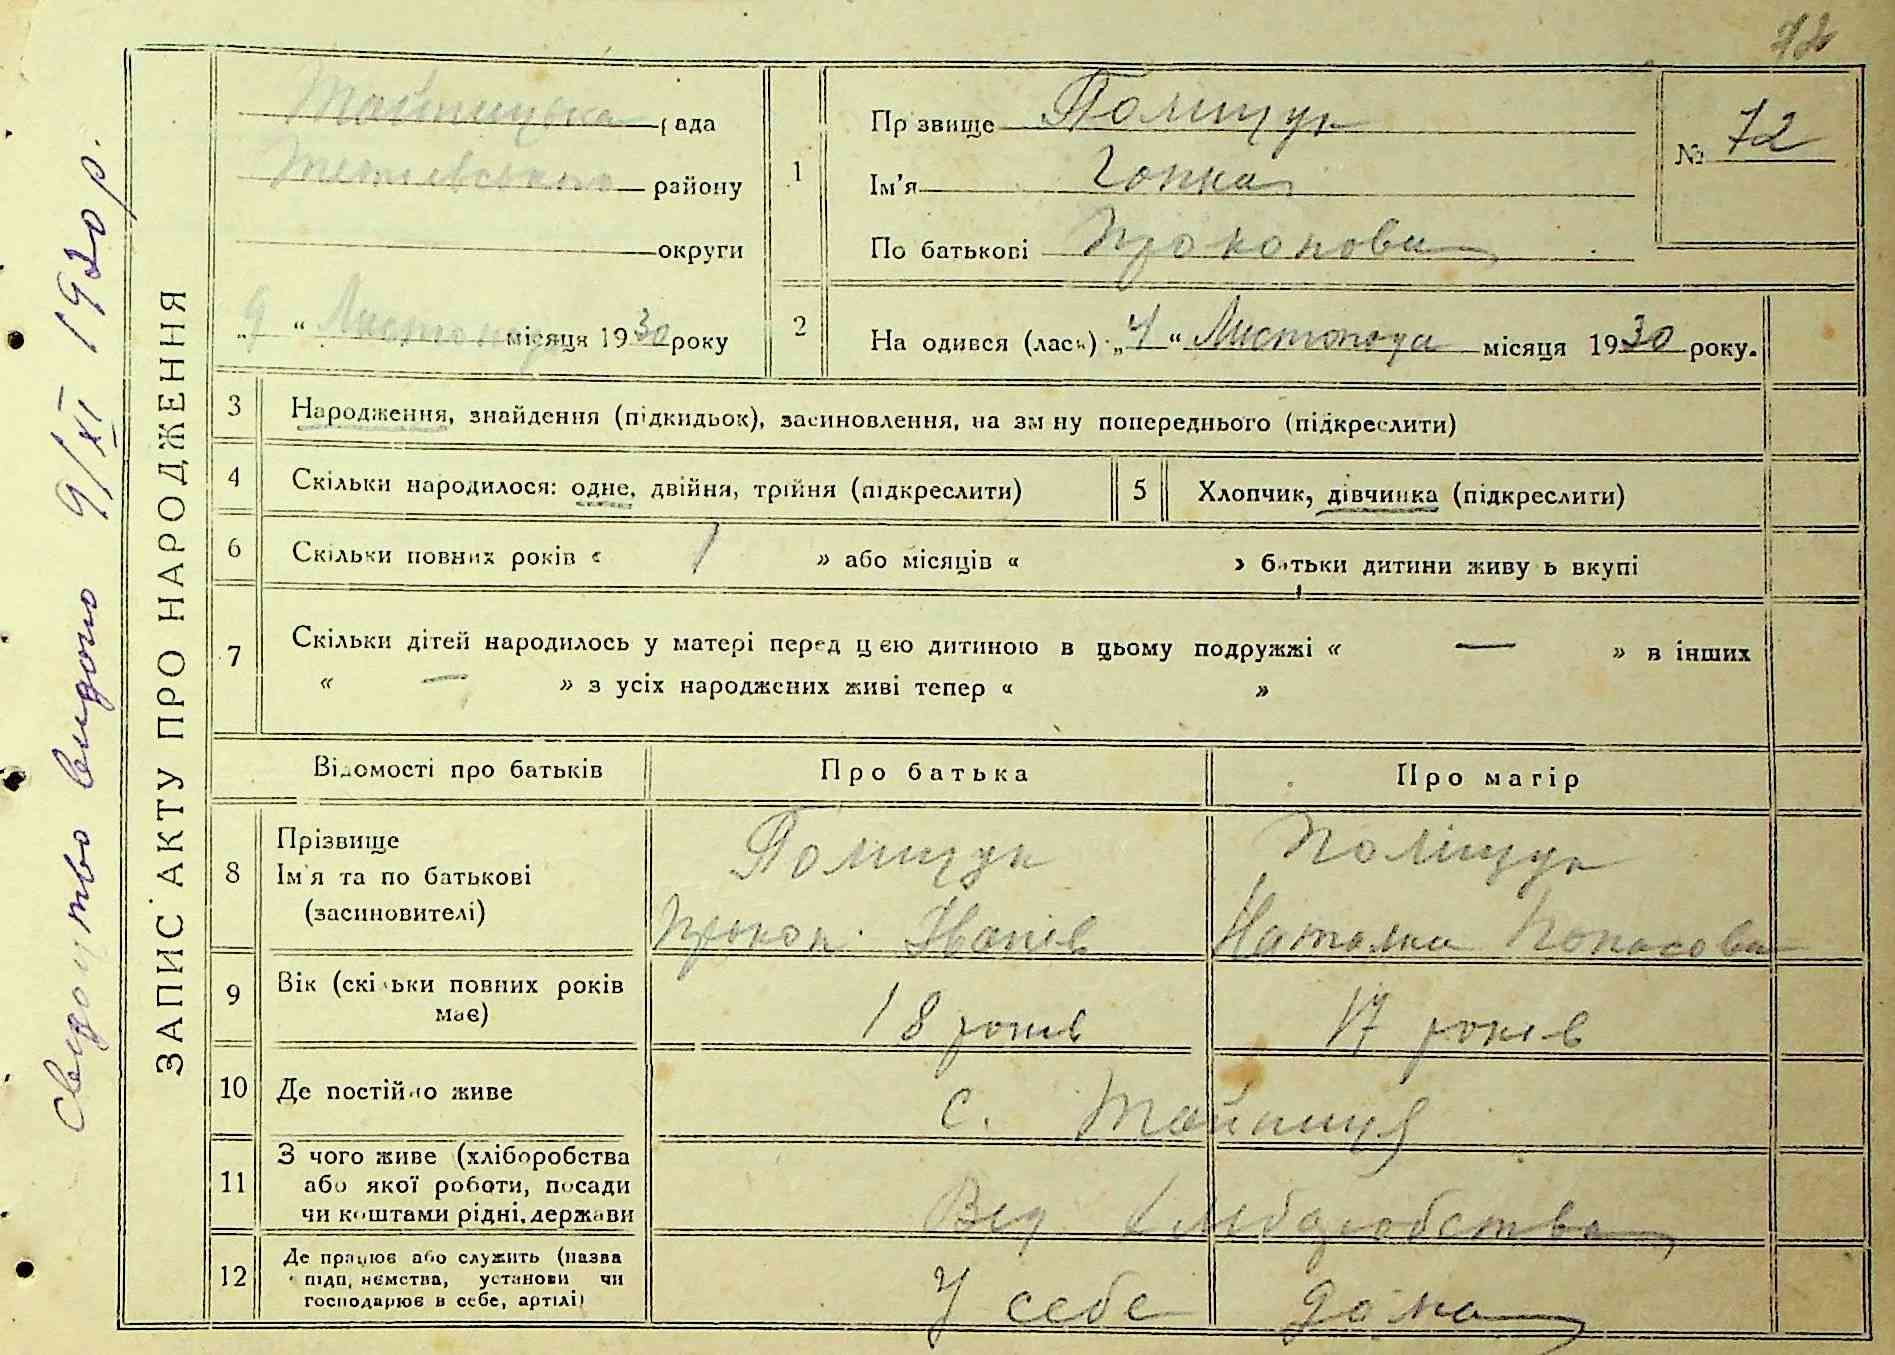 72
Свидоцтво видано 9/XI 1930 р.
ЗАПИС АКТУ ПРО НАРОДЖЕННЯ
Тайницька рада
Тетіївського району
округи
„9“ Листопада місяця 1930 року
1
Прізвище Полищук
Ім'я Ганка
По батькові Прокопова
№ 72
2
На одився (лась) „4“ Листопода місяця 1930 року.
3 Народження, знайдення (підкидьок), засиновлення, на зм ну попереднього (підкреслити)
4 Скільки народилося: одне, двійня, трійня (підкреслити)
5 Хлопчик, дівчинка (підкреслити)
6 Скільки повних років « 1 » або місяців « » батьки дитини живу ь вкупі
7 Скільки дітей народилось у матері перед цією дитиною в цьому подружжі « — » в інших
« — » з усіх народжених живі тепер « »
Відомості про батьків Про батька Про матір
8 Прізвище
Ім'я та по батькові
(засиновителі)
Полищук
Прокоп Іванів
Поліщук
Наталка
9 Вік (скільки повних років
має)
18 років 17 років
10 Де постійно живе с. Тайниця
11 З чого живе (хліборобства
або якої роботи, посади
чи коштами рідні, держави
Від хлібаробства
12 Де працює або служить (назва
підп, немства, установи чи
господарює в себе, артілі)
У себе дома